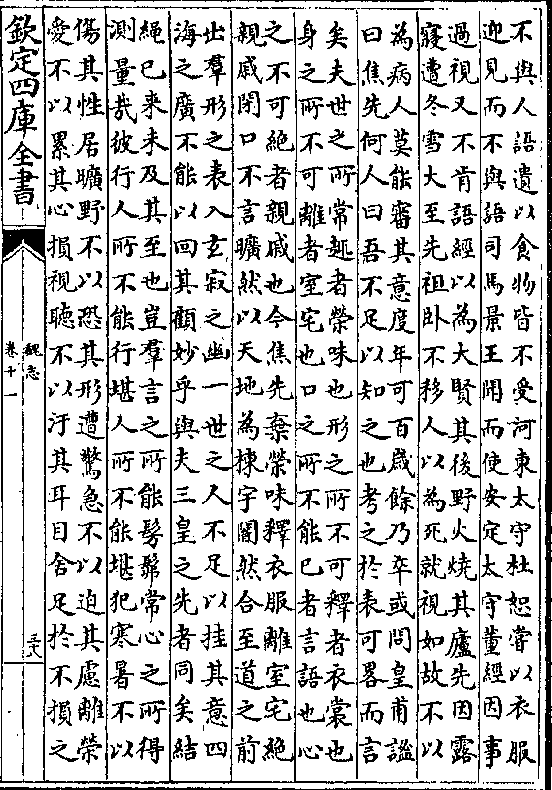 不與人語遺以食物皆不受河東太守杜恕嘗以衣服
迎見而不與語司馬景王聞而使安定太守董經因事
過視又不肯語經以為大賢其後野火燒其廬先因露
寢遭冬雪大至先祖臥不移人以為死就視如故不以
為病人莫能審其意度年可百歲餘乃卒或問皇甫謐
曰焦先何人曰吾不足以知之也考之於表可畧而言
矣夫世之所常趣者榮味也形之所不可釋者衣裳也
身之所不可離者室宅也口之所不能已者言語也心
之不可絶者親戚也今焦先棄榮味釋衣服離室宅絶
親戚閉口不言曠然以天地為棟宇闇然合至道之前
出羣形之表入玄寂之幽一世之人不足以挂其意四
海之廣不能以回其顧妙乎與夫三皇之先者同矣結
繩已來未及其至也豈羣言之所能髣髴常心之所得
測量哉彼行人所不能行堪人所不能堪犯寒暑不以
傷其性居曠野不以恐其形遭驚急不以迫其慮離榮
愛不以累其心損視聽不以汙其耳目舍足於不損之
欽定四庫全書
魏志
卷十一